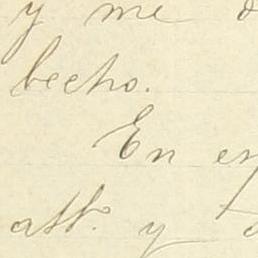 y me
becho.
En
att. y